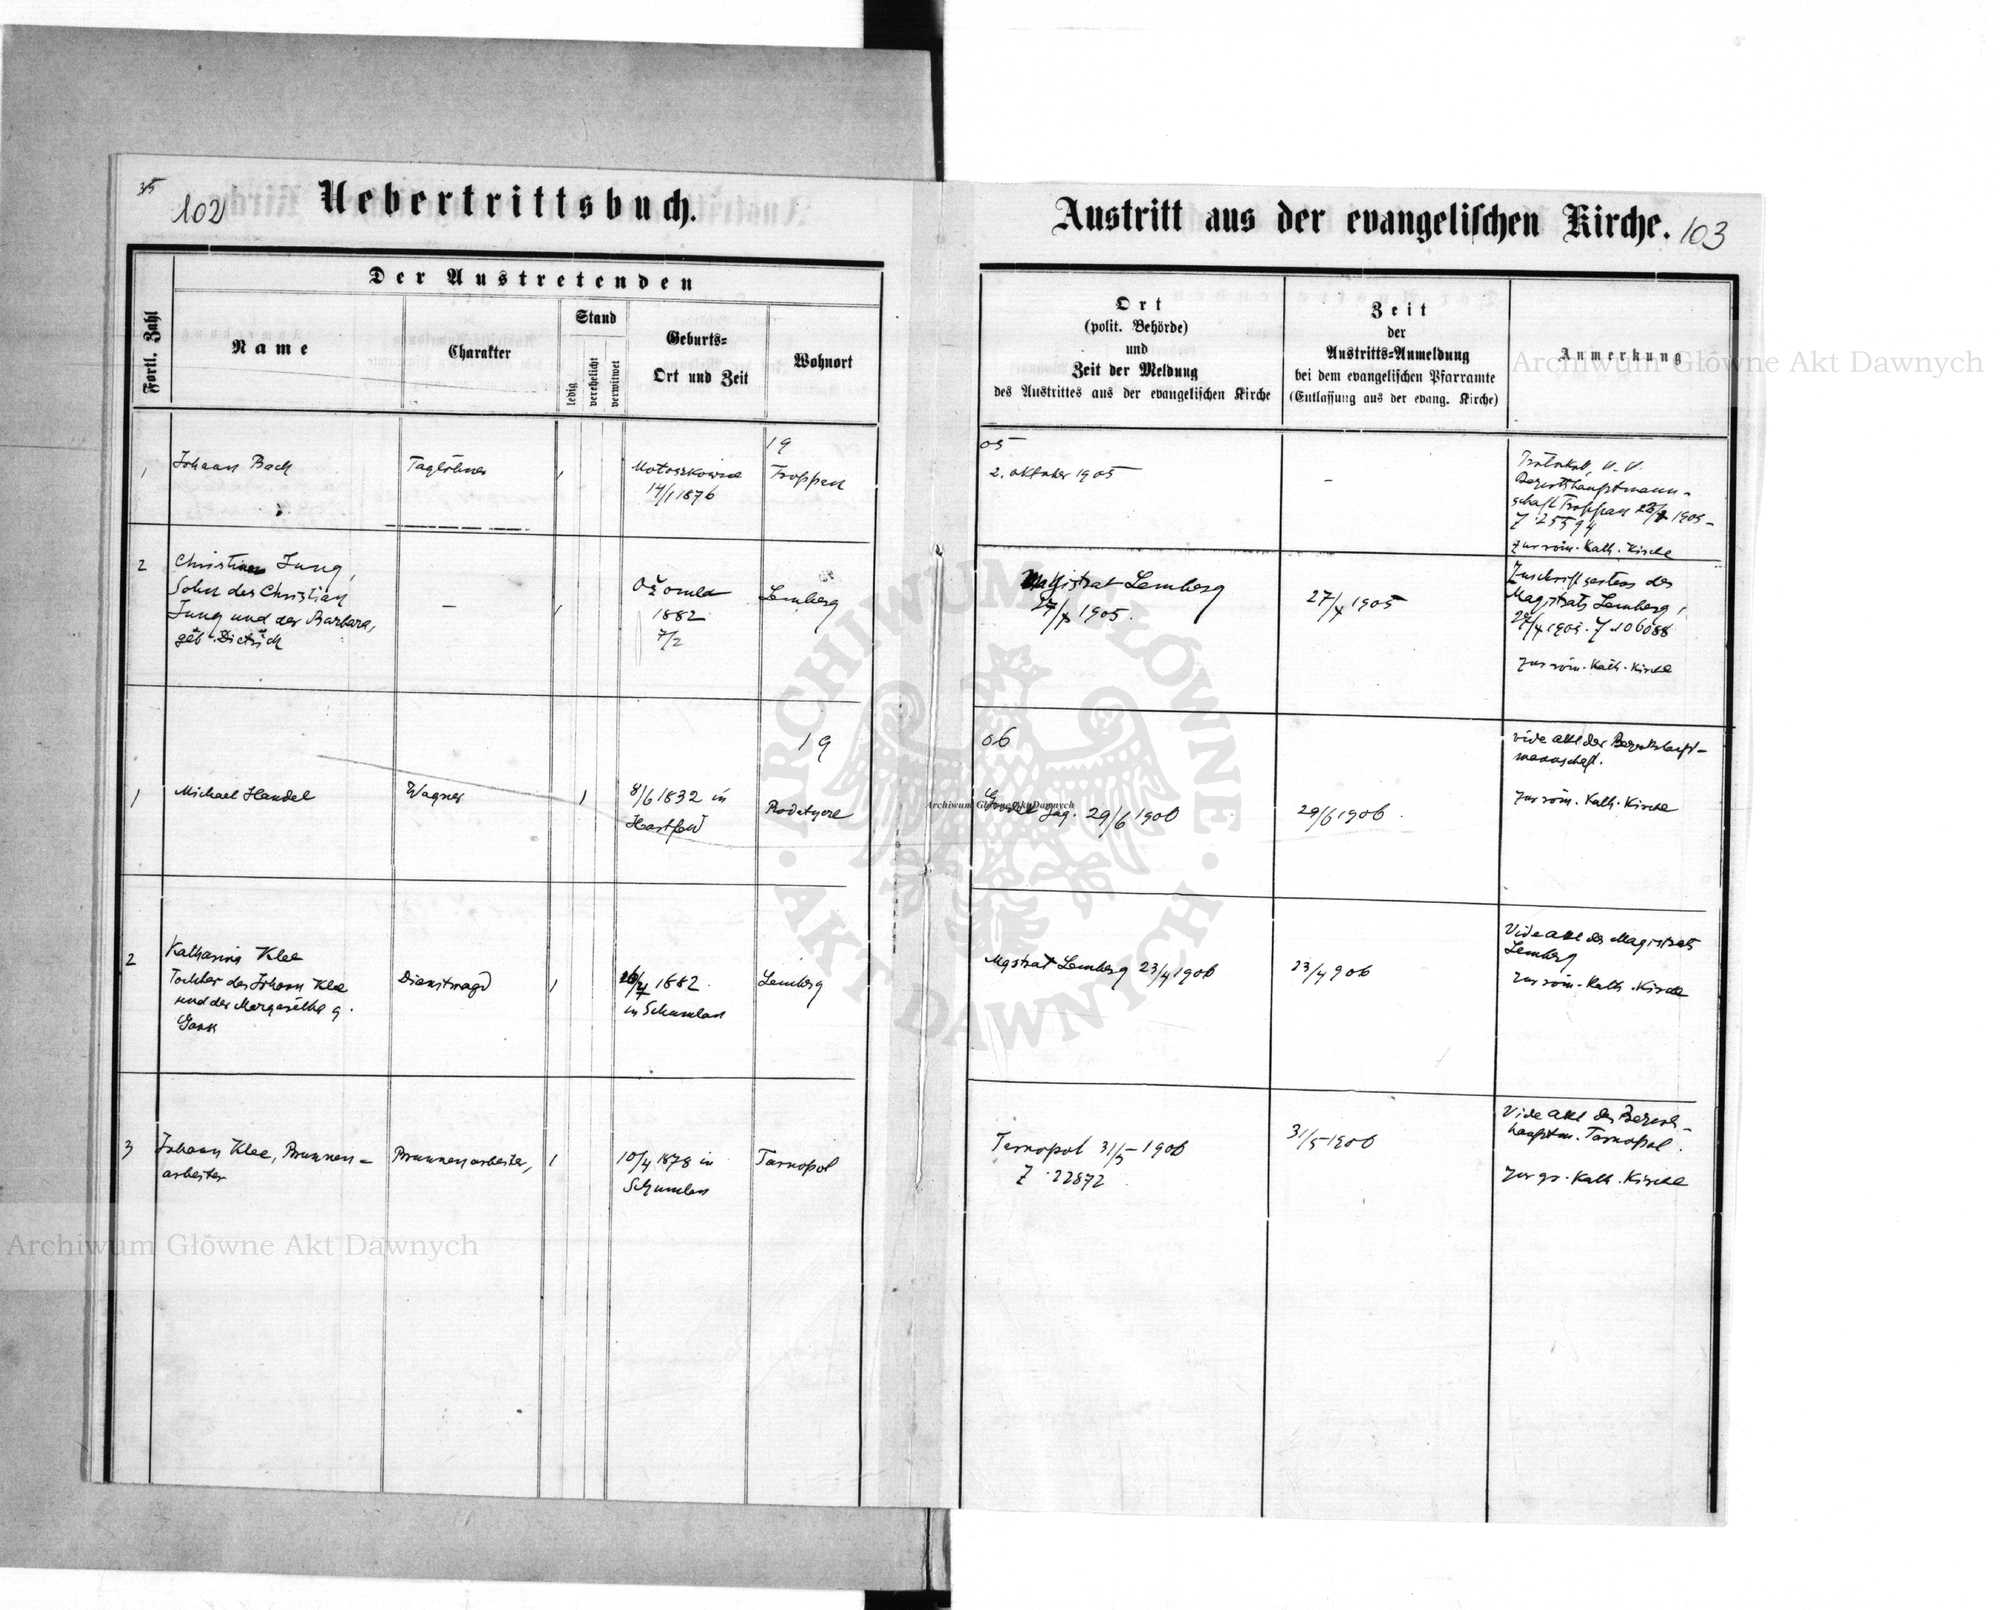 35
102
Uebertrittsbuch.
Austritt aus der evangelischen Kirche.
103
Fortl. Zahl
Der Austretenden
Name
Charakter
Stand
ledig
verehelicht
verwitwet
Geburts-
Ort und Zeit
Wohnort
Ort
(polit. Behörde)
und
Zeit der Meldung
des Austrittes aus der evangelischen Kirche
Zeit
der
Austritts-Anmeldung
bei dem evangelischen Pfarramte
(Entlassung aus der evang. Kirche)
Anmerkung
19
05
1
Johann Bach
Taglöhner
1
14/1 1876
Troppau
2. Oktober 1905
-
Bezirkshauptmann-
schaft Troppau 1905-
Z. 25594
zur röm. Kath. Kirche
2
Christian Jung,
Sohn des Christian
Jung und der Barbara,
geb. Dietrich
-
1
Ożomla
1882
7/2
Lemberg
Magistrat Lemberg
27/X 1905.
27/X 1905
des
Magistrats Lemberg,
27/X 1905. Z 106088
zur röm. Kath. Kirche
19
06
1
Michael Handel
Wagner
1
8/6 1832 in
Hartfeld
Rodatycze
Grodek Jag. 29/6 1906
29/6 1906.
vide Akt der Bezirkshaupt-
mannschaft.
zur röm. Kath. Kirche
2
Katharina Klee
Tochter des Johann Klee
und der Margaretha g.
Dienstmagd
1
1882.
in Schumlau
Lemberg
Mgstrat Lemberg 23/4 1906
23/4 906
Vide Akt des Magistrats
Lemberg
zur röm. Kath. Kirche
3
Johann Klee, Brunnen-
arbeiter
Brunnenarbeiter,
1
10/4 1878 in
Schumlau
Tarnopol
Tarnopol 31/5 1906
Z. 22872
31/5 1906
Vide Akt der Bezirks-
hauptm. Tarnopol.
zur gr. Kath. Kirche
ARCHIWUM GŁÓWNE
AKT DAWNYCH
Archiwum Główne Akt Dawnych
Archiwum Główne Akt Dawnych
Archiwum Główne Akt Dawnych